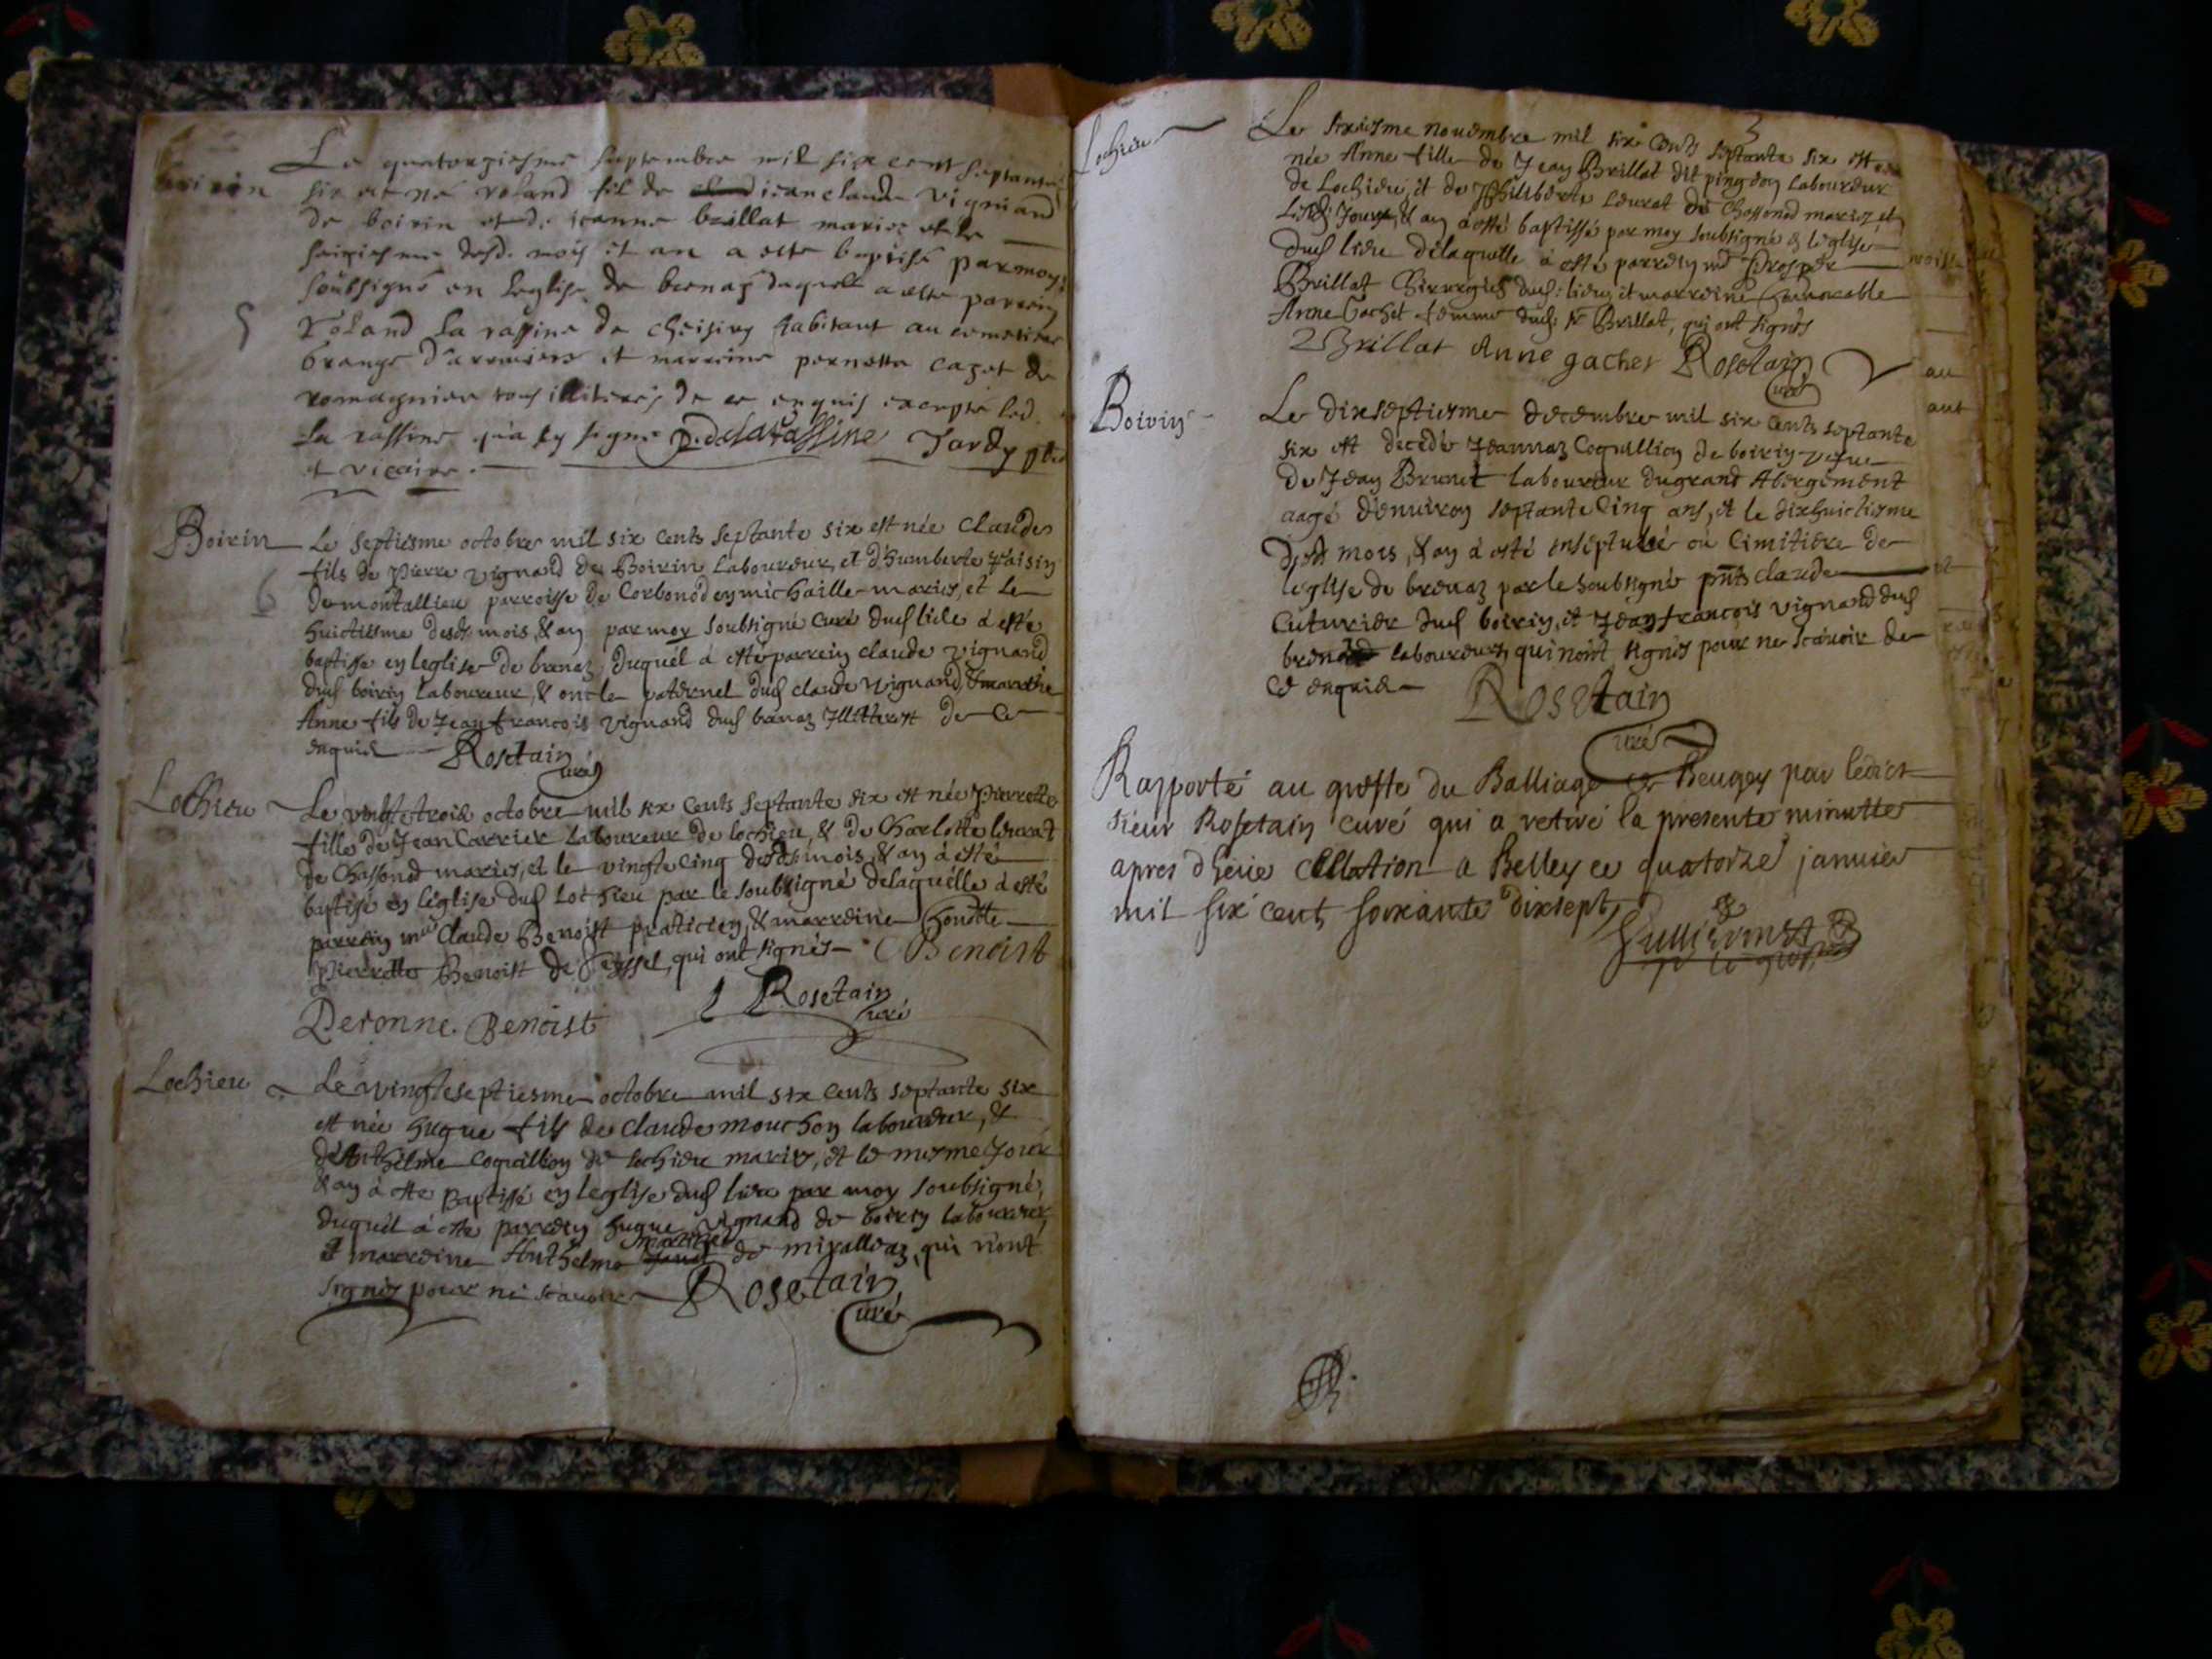 boirin
Le quatorziesme septembre mil six cent septante
six est né roland fil de jean claude vignand
de boirin et de jeanne brillat mariez et le
seiziesme desd. mois et an a este baptisé par moy
soubsigné en leglise de brenaz duquel a este parrein
Roland la rassine de habitant au
5
grange et marreine pernette cazet de
romagnieu tous illiteres de ce enquis excepte led.
la rassine qu'a sy signe P. delarassine Tardy pbre
et vicaire.
Boirin Le septiesme octobre mil six cents septante six est née Claude
fils de Pierre vignand de Boirin Laboureur, et d'humberte raisin
6
de montallieu parroisse de Corbonod en michaille mariés, et Le
huictiesme desd. mois, & an par moy soubsigné Curé dud lieu à esté
baptisse en leglise de brenaz, duquel à esté parrein claude vignand
dud boirin laboureur, & oncle paternel dud claude vignand,
Anne fils de Jean francois vignand dud brenaz Illitterest de ce
enquis Rosetain
Curé
Lochieu Le vingt trois octobre mil six Cents septante six est née Pierrette
fille de Jean Carrier Laboureur de lochieu, & de Charlotte leurat
de Chassonod mariés, et le vingt cinq desd. mois, & an à esté
baptisé en léglise dud Lochieu par le soubsigné delaquelle à esté
parrein mre Claude Benoist praticien, & marreine honnte
pierrette Benoist de Seyssel, qui ont signés CBenoist
Rosetain
Curé
Peronne Benoist
Lochieu Le vingt septiesme octobre mil six Cents septante six
est née hugue fils de claude mouchon laboureur, &
d'Anthelme Coquillion de lochieu mariés, et le mesme Jour
& an à esté baptissé en leglise dud lieu par moy soubsigné,
duquel à esté parrein hugue vignand de boirin laboureur
et marreine Anthelme de miralleaz, qui n'ont
signés pour ne scavoir Rosetain
Curé
3
Lochieu Le sixiesme novembre mil six Cents septante six est
née Anne fille de Jean Brillat dit pingeon Laboureur
de Lochieu, et de Philiberte Leurat de Chassonod mariez, et
Lesd. Jour, & an à esté baptissé par moy soubsigné en léglise
dud lieu delaquelle à esté parrein mre Prosper
Brillat Chirurgien dud. lieu, et marreine honnorable
Anne Gachet femme dud. Sr Brillat, qui ont signés
Brillat Anne gachet Rosetain
Curé
Boirin Le dixseptiesme decembre mil six Cents septante
six est decedée Jeannaz Coquillion de boirin vefue
de Jean Brunet laboureur du grand Abergement
aagé d'enuiron septante Cinq ans, et le dixhuictiesme
desd mois, & an à esté ensepturé au Cimitiere de
léglise de brenaz par le soubsigné pnts claude
Cuturier dud boirin, et Jean francois vignand dud
brenaz laboureurs, qui n'ont signés pour ne scavoir de
Ce enquis Rosetain
Curé
Rapporté au greffe du Balliage de Beugey par ledict
sieur Rosetain curé qui a retiré la presente minutte
apres d'heue Collation a Belley ce quatorze januier
mil six cent soixante dixsept,